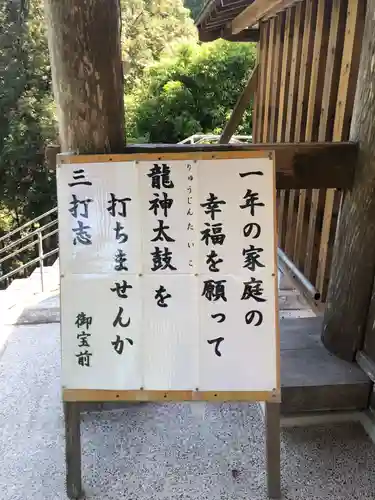 一年の家庭の
幸福を願って
りゅうじんたいこ
龍神太鼓を
打ちませんか
三打志
御宝前